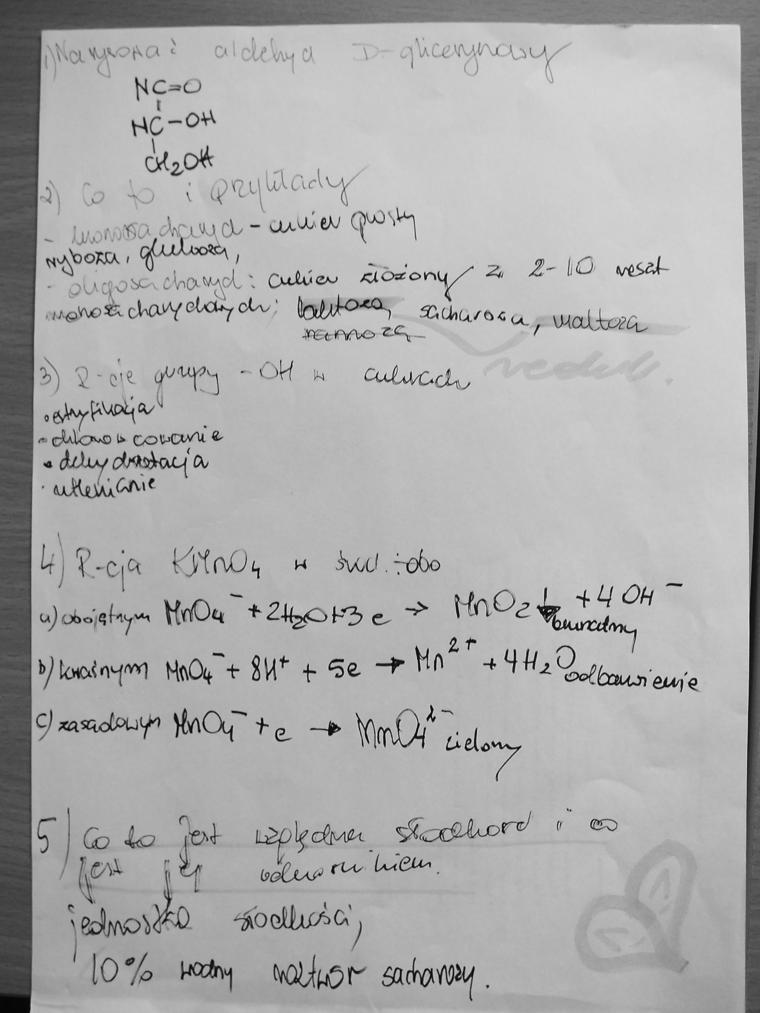 1) Narysować aldehyd D-glicerynowy
HC=O
HC-OH
CH2OH
2) Co to i przykłady
- monosacharyd - cukier prosty
ryboza, glukoza,
- oligosacharyd: cukier złożony z 2-10 reszt
monosacharydowych: laktoza, sacharoza, maltoza
3) R-cje grupy -OH w cukrach
• estryfikacja
• chlorowcowanie
• dehydratacja
• utlenianie
4) R-cja KMnO4 w środ.:
a) obojętnym MnO4⁻ + 2H2O + 3e → MnO2↓ + 4OH⁻
brunatny
b) kwaśnym MnO4⁻ + 8H⁺ + 5e → Mn²⁺ + 4H2O odbarwienie
c) zasadowym MnO4⁻ + e → MnO4²⁻ zielony
5) Co to jest względna słodkość i co
jest jej odnośnikiem.
jednostka słodkości,
10% wodny roztwór sacharozy.